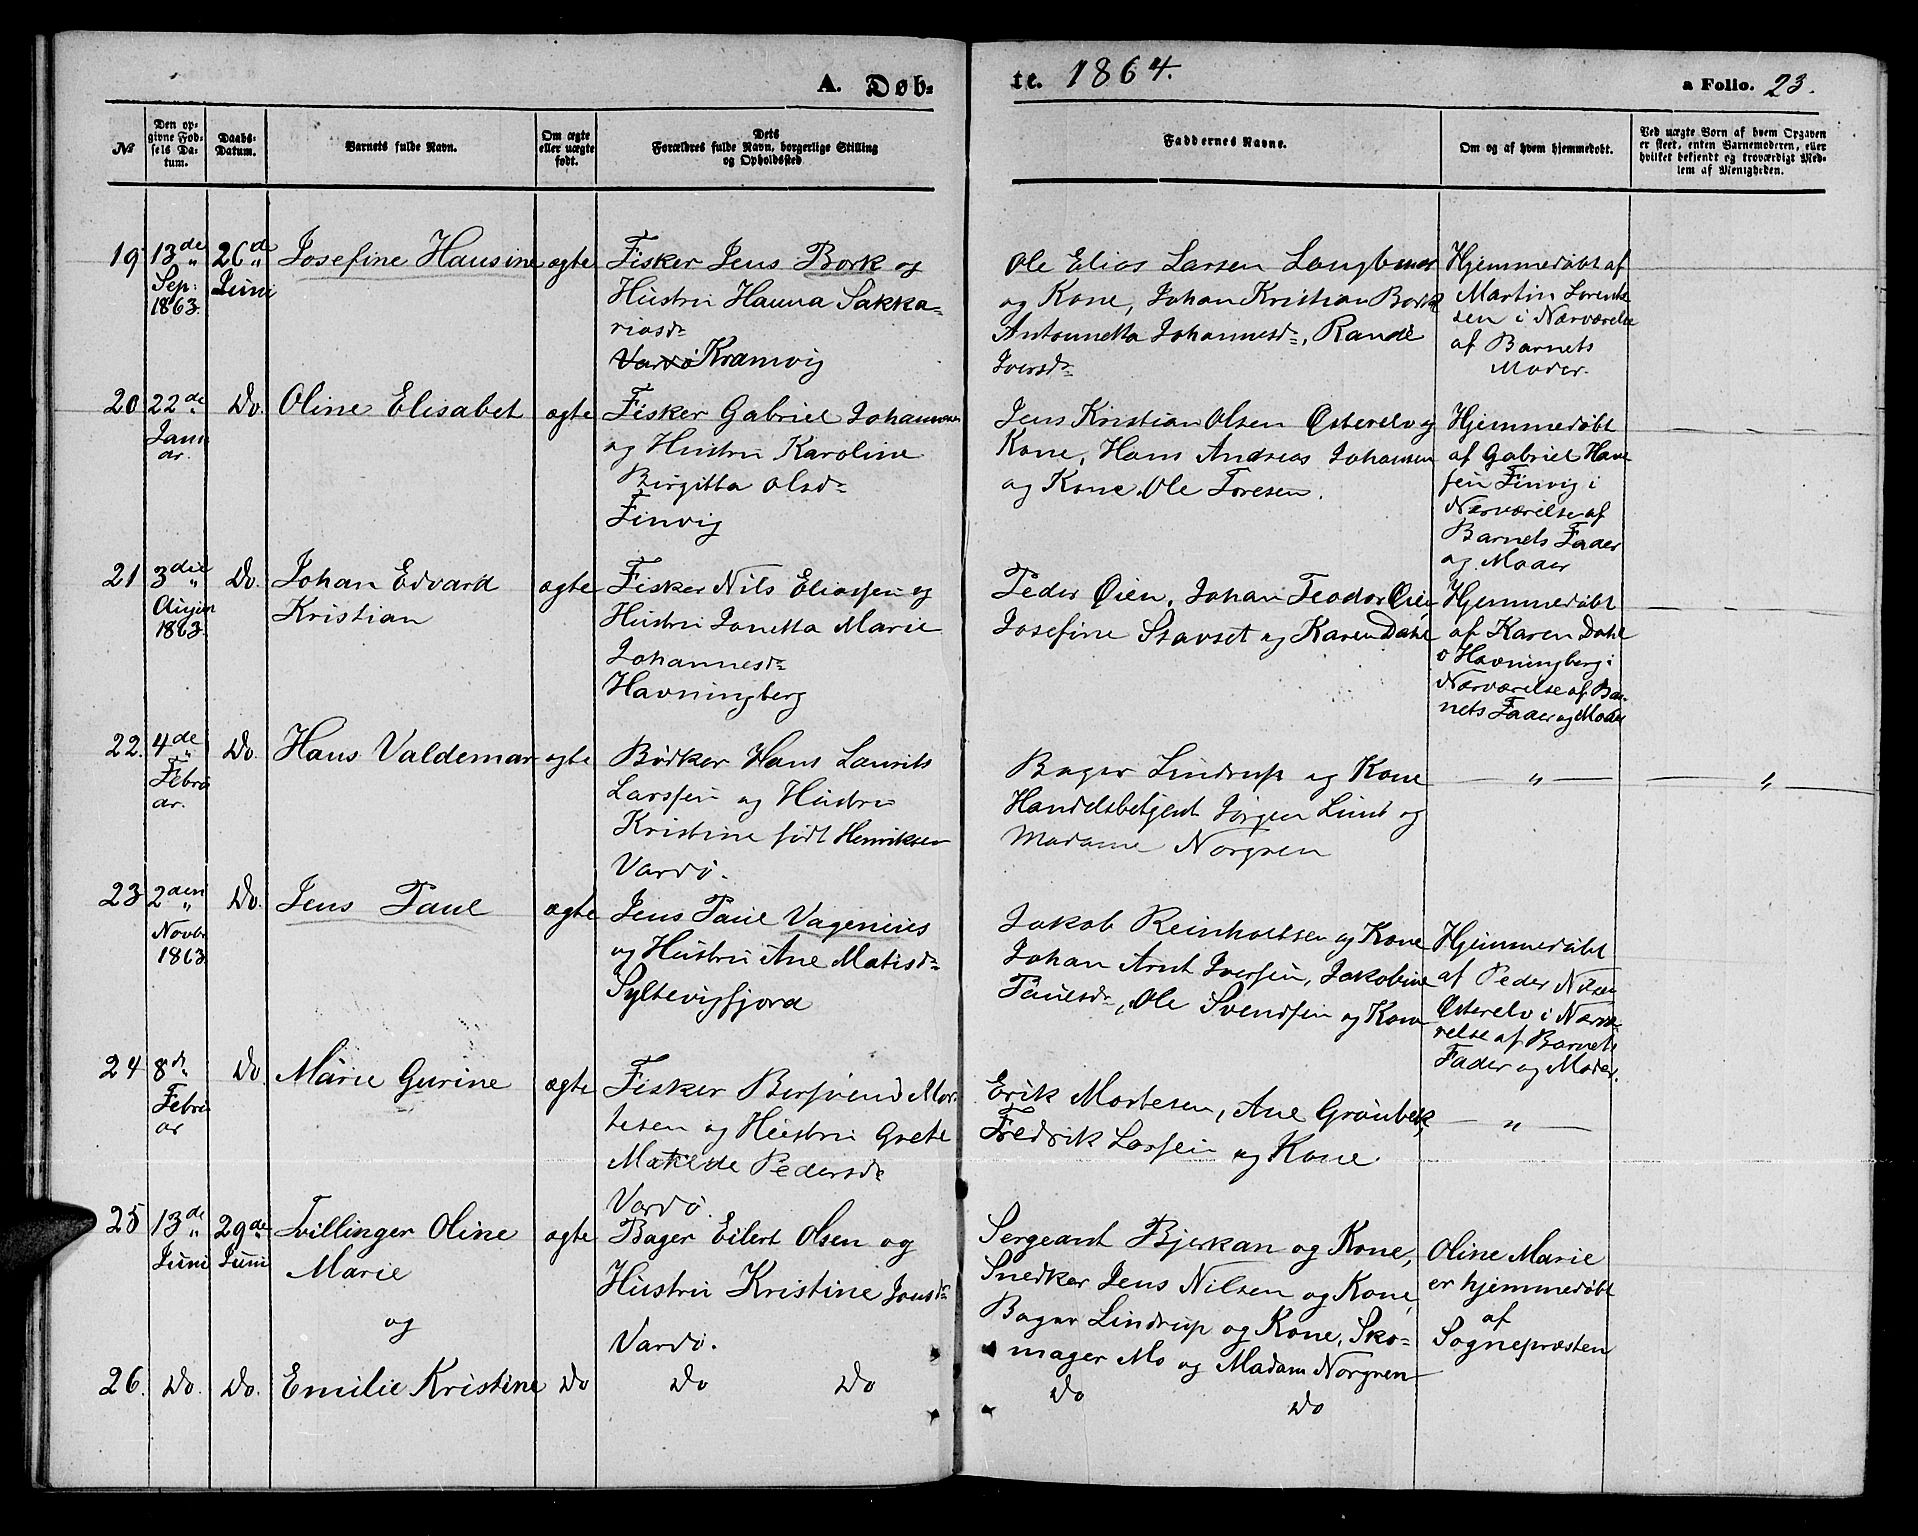 A. Døb-
te. 1864.
a Folio. 23.
No
Den op-
givne Fød-
sels Da-
tum.
Daabs-
Datum.
Barnets fulde Navn.
Om ægte
eller uægte
født.
Dets
Forældres fulde Navn, borgerlige Stilling
og Opholdssted.
Faddernes Navne.
Om og af hvem hjemmedøbt.
Ved uægte Børn af hvem Opgaven
er skeet, enten Barnemoderen, eller
hvilket bekjendt og troværdigt Med-
lem af Menigheden.
19
13de
Sep:
1863.
26de
Juni
Josefine Hansine
ægte
Fisker Jens Bork og
Hustru Hanna Sakka-
riasdr
Vardö Kramvig
Ole Elias Larsen
og Kone, Johan Kristian Bork
Antonnetta Johannesdr, Rande
Iversdr
Hjemmedøbt af
Martin Lorent
sen i Nærværelse
af Barnets
Moder.
20
22de
Janu
ar.
Do.
Oline Elisabet
ægte
Fisker Gabriel Johannesen
og Hustru Karoline
Birgitta Olsdr
Finvig
Jens Kristian Olsen Østerelv og
Kone, Hans Andreas Johansen
og Kone, Ole Toresen.
Hjemmedøbt
af Gabriel Han
sen Finvig i
Nærværelse af
Barnets Fader
og Moder
21
3die
1863.
Do.
Johan Edvard
Kristian
ægte
Fisker Nils Eliassen og
Hustru Jonetta Marie
Johannesdr
Havningberg
Peder Øien, Johan Teodor Øien
Josefine Stavset og Karen Dahl
Hjemmedøbt
af Karen Dahl
Havningberg i
Nærværelse af Bar-
nets Fader og Moder
22.
4de
Febru
ar.
Do.
Hans Valdemar
ægte
Bødker Hans Laurits
Larssen og Hustru
Kristine født Henriksen
Vardö.
Bager Lindrup og Kone
Handelsbetjent Jörgen Lund og
Madame Norgren
— " —
— "
23
2den
Novbr
1863
Do.
Jens Paul
ægte
Jens Paul Vagenius
og Hustru Ane Matisdr
Syltevigfjord
Jakob Reinholtsen og Kone
Johan Arnt Iversen, Jakobine
Paulsdr, Ole Svendsen og Kone
Hjemmedøbt
af Peder Nilsen
Østerelv i Nærvæ
relse af Barnets
Fader og Moder.
24
8de
Febru
ar
Do.
Marie Gurine
ægte
Fisker Bersvend Mor
tesen og Hustru Grete
Matelde Pedersdr
Vardö.
Erik Mortesen, Ane Grönbek,
Fredrik Larsen og Kone
— " —
25
13de
Juni
29de
Juni
Tvillinger Oline
Marie
og
ægte
Bager Eilert Olsen og
Hustru Kristine Jonsdr
Vardö.
Sergeant Bjerkan og Kone,
Snedker Jens Nilsen og Kone,
Bager Lindrup og Kone, Sko-
mager Mo og Madam Norgren
Oline Marie
er hjemmedøbt
af
Sognepræsten
26.
Do.
Do.
Emilie Kristine
Do
Do Do
Do
Do